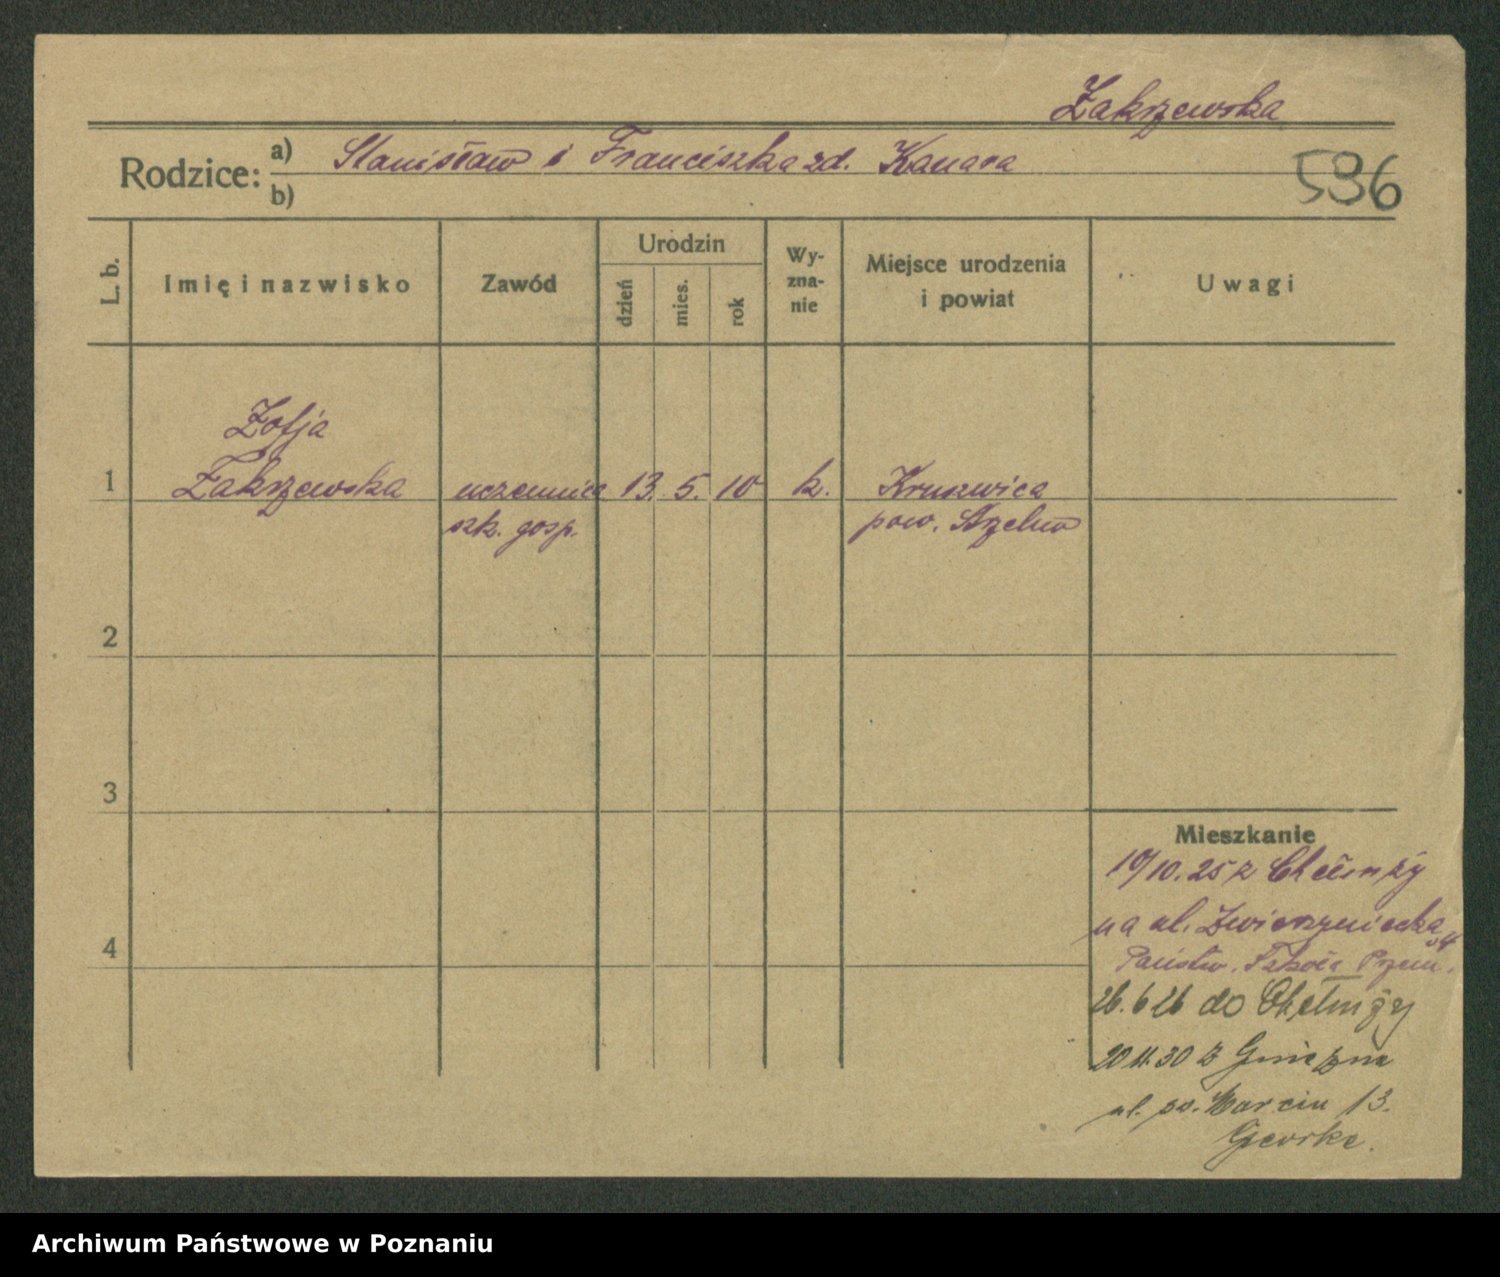 Zakrzewska
Rodzice: a) Stanisław i Franciszka zd. Kanara
b)
536
L. b.
Imię i nazwisko
Zawód
Urodzin
dzień
mies.
rok
Wy-
zna-
nie
Miejsce urodzenia
i powiat
Uwagi
Zofja
1 Zakrzewska uczennica 13. 5. 10 k. Kruszwica
szk. gosp. pow. Strzelno
2
3
Mieszkanie
19/10.25 z Chełmży
na ul. Zwierzyniecka
4
Państw. Szkoła Przem.
26.6 26 do Chełmży
20 11.30 z Gniezna
ul. św. Marcin 13.
Archiwum Państwowe w Poznaniu